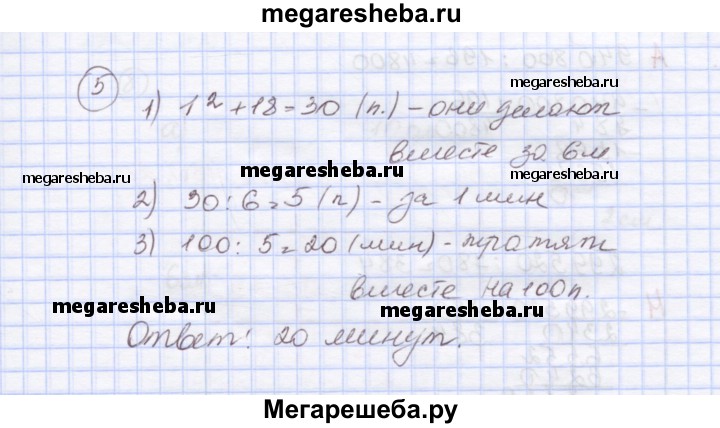 megaresheba.ru
5
megaresheba.ru
megaresheba.ru
1) 12 + 18 = 30 (п.) - они делают
вместе за 6м.
megaresheba.ru
megaresheba.ru
megaresheba.ru
2) 30 : 6 = 5 (п) - за 1 мин
3) 100 : 5 = 20 (мин) - тратят
вместе на 100п.
megaresheba.ru
megaresheba.ru
Ответ: 20 минут.
Мегарешеба.ру